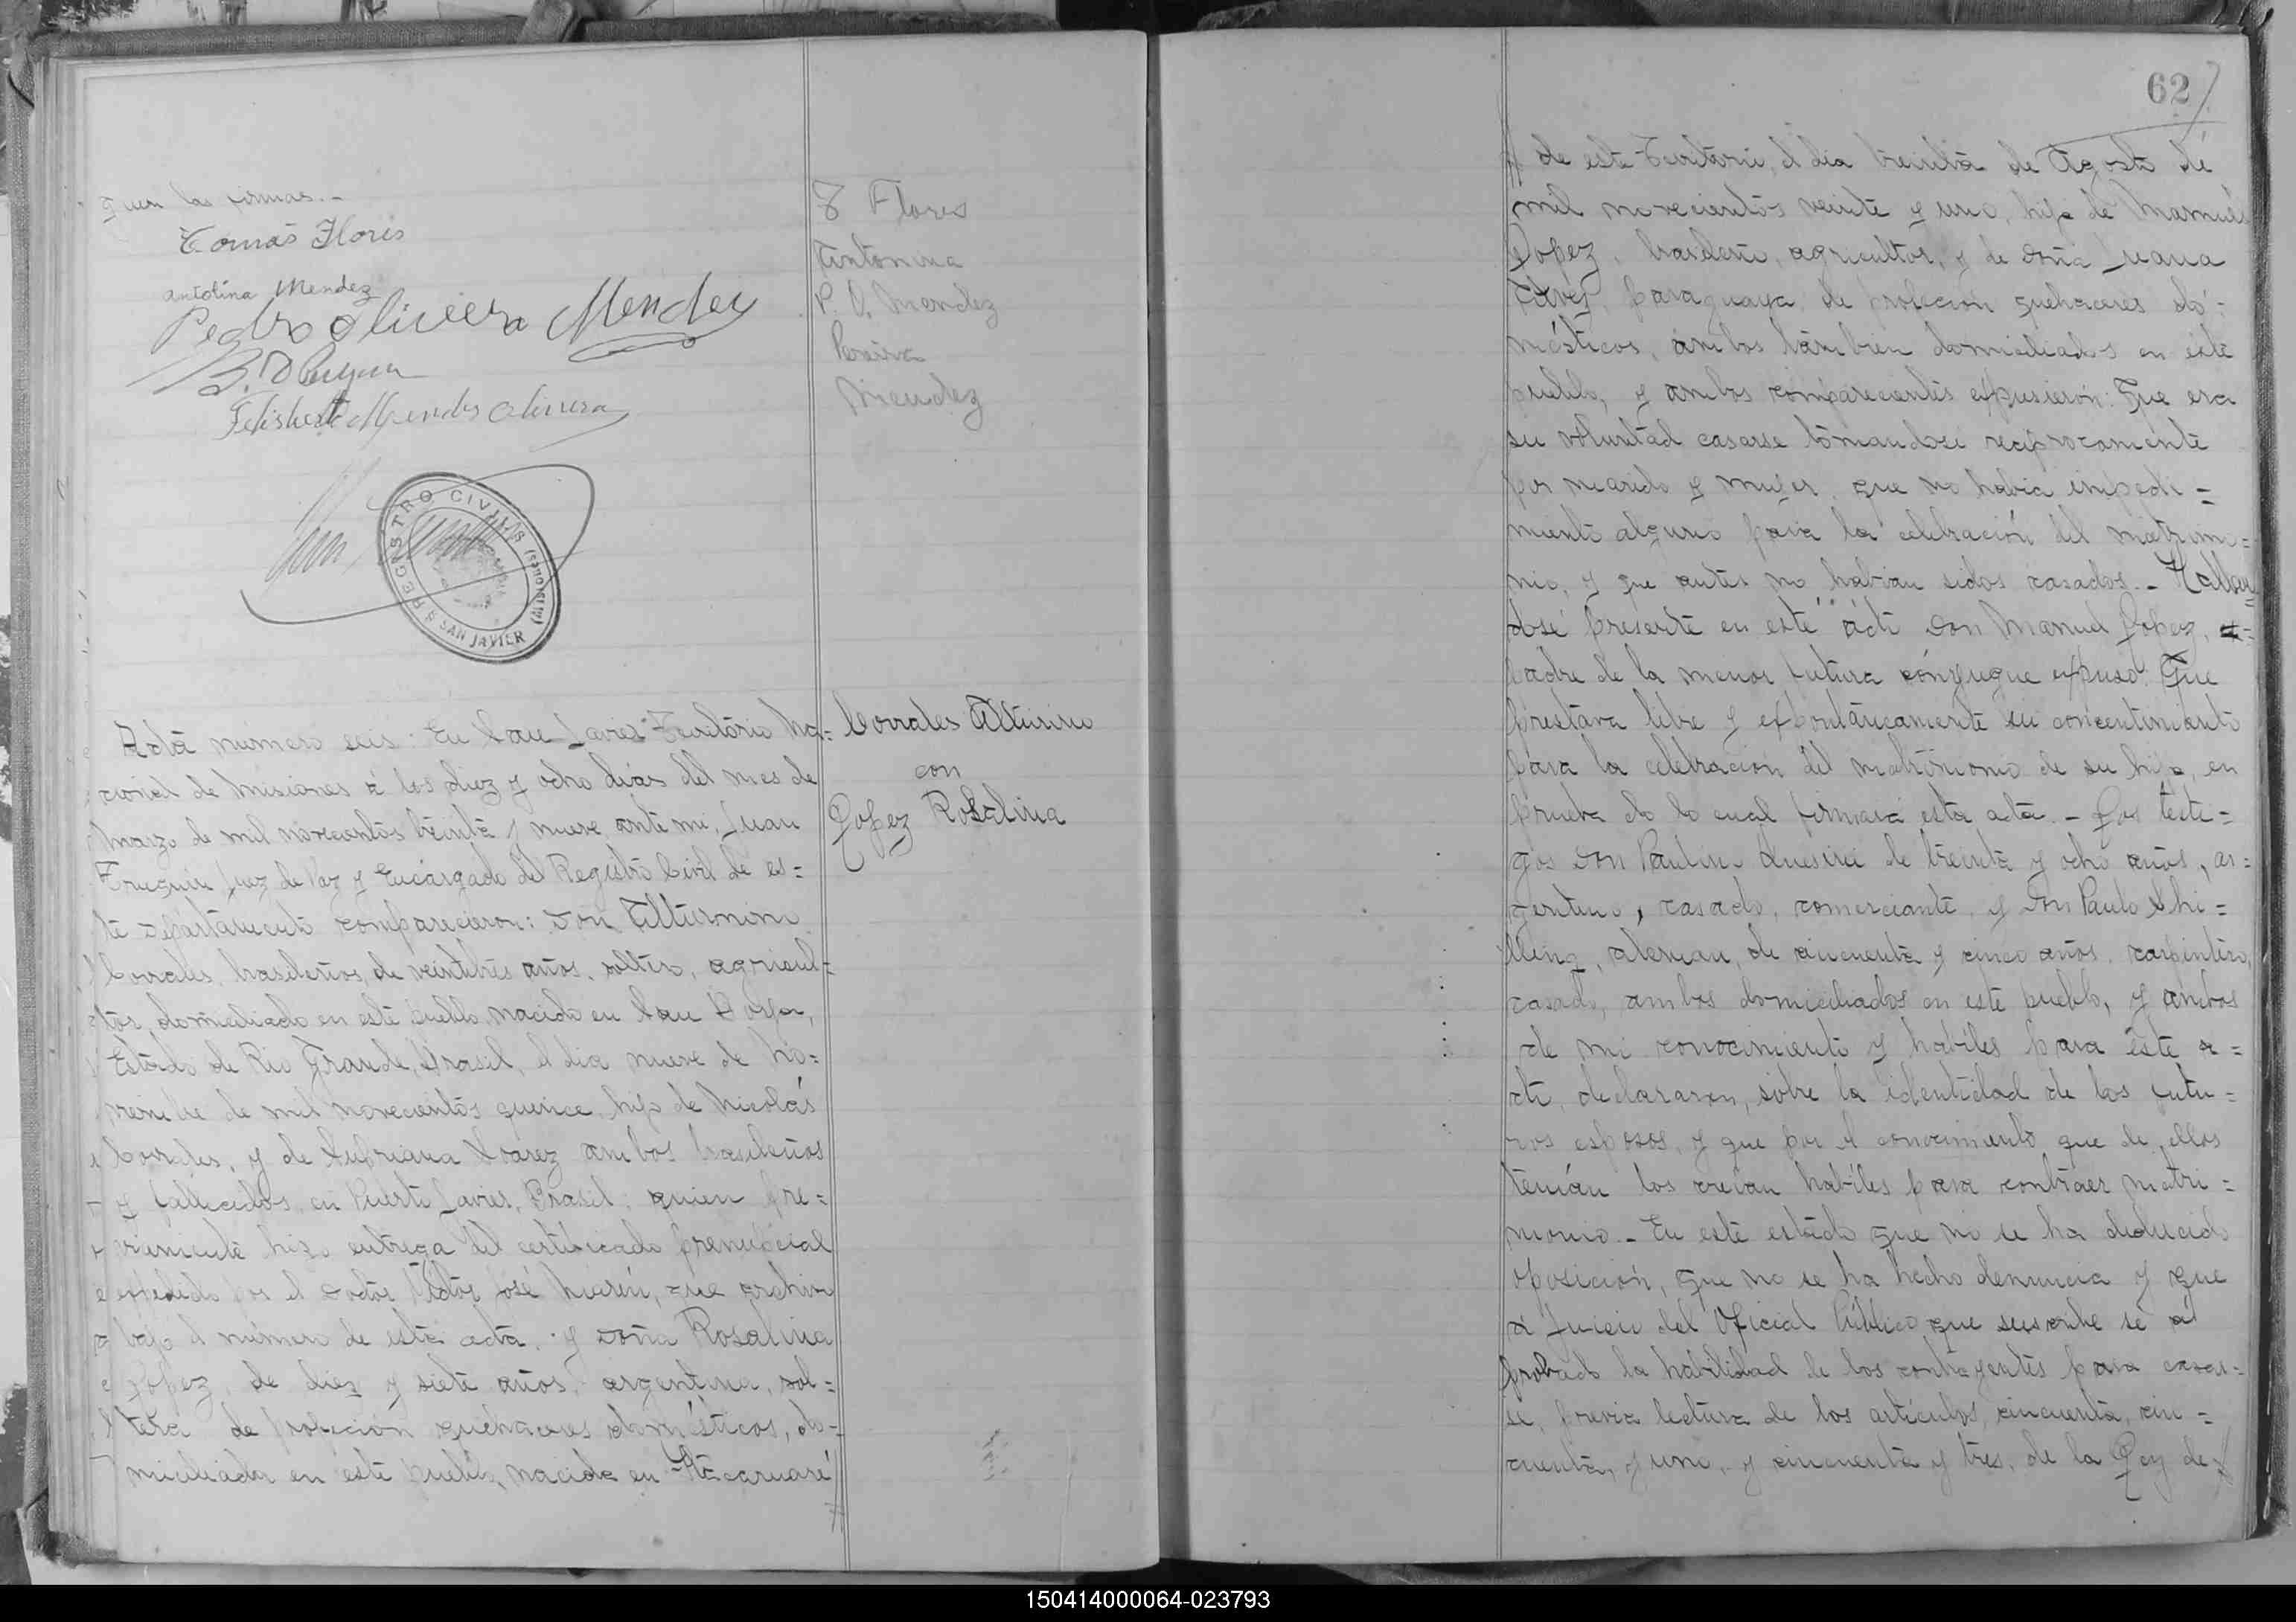 62
guen las firmas.-
Tomás Flores
Antolina Mendez
Pedro Olivera Mendez
Felisberto Mendes Olivera
REGISTRO CIVIL
SAN JAVIER (MISIONES)
T Flores
Antonina
P. O. Mendez
Pereira
Mendez
Acta número seis: En San Javier Territorio Na=
cional de Misiones á los diez y ocho dias del mes de
Marzo de mil novecientos treinta y nueve, ante mi, Juan
Juez de Paz y Encargado del Registro Civil de es=
te Departamento comparecieron: Don Alturnino
Corrales, brasileños, de veintitrés años, soltero, agricul=
tor, domiciliado en este pueblo, nacido en San Borja,
Estado de Rio Grande, Brasil, el dia nueve de No=
viembre de mil novecientos quince, hijo de Nicolás
Corrales, y de Suarez ambos brasileños
y fallecidos, en Puerto Javier, Brasil; quien pre=
viamente hizo entrega del certificado prenupcial
expedido por el Doctor Victor José que archivo
bajo el número de esta acta. y doña Rosalina
Lopez, de diez y siete años, argentina, sol=
tera de profeción quehaceres domésticos, do=
miciliada en este pueblo, nacida en Itacaruaré
Corrales Alturnino
con
Lopez Rosalina
de este Territorio, el dia treinta de Agosto de
mil novecientos veinte y uno, hija de Manuel
Lopez, brasileño, agricultor, y de doña Juana
paraguaya, de profecion quehaceres do=
mésticos, ambos tambien domiciliados en este
pueblo, y ambos comparecientes expusieron: Que era
su voluntad casarse tomandose reciprocamente
por marido y mujer, que no habia impedi=
miento alguno para la celebración del matrimo=
nio, y que antes no habian sidos casados.- Hallan=
dosé presente en este acto don Manuel Lopez,
padre de la menor futura cónyugue expuso: Que
prestava libre y expontáneamente su concentimiento
para la celebración del matrimonio de su hija, en
prueba de lo cual firmará esta acta.- Los testi=
gos don Paulino de treinta y ocho años, ar=
gentino, casado, comerciante, y don Paulo Shi=
lling, aleman, de cincuenta y cinco años, carpintero,
casado, ambos domiciliados en este pueblo, y ambos
de mi conocimiento y habiles para este a=
cto, declararon, sobre la identidad de los futu=
ros esposos, y que por el conocimiento que de ellos
tenían los creían habiles para contraer matri=
monio.- En este estado que no se ha deducido
oposición, que no se ha hecho denuncia y que
a juicio del Oficial Público que suscribe se a
probado la habilidad de los contrayentes para casar=
se, previa lectura de los artículos, cincuenta, cin=
cuenta, y uno, y cincuenta y tres, de la Ley de
150414000064-023793